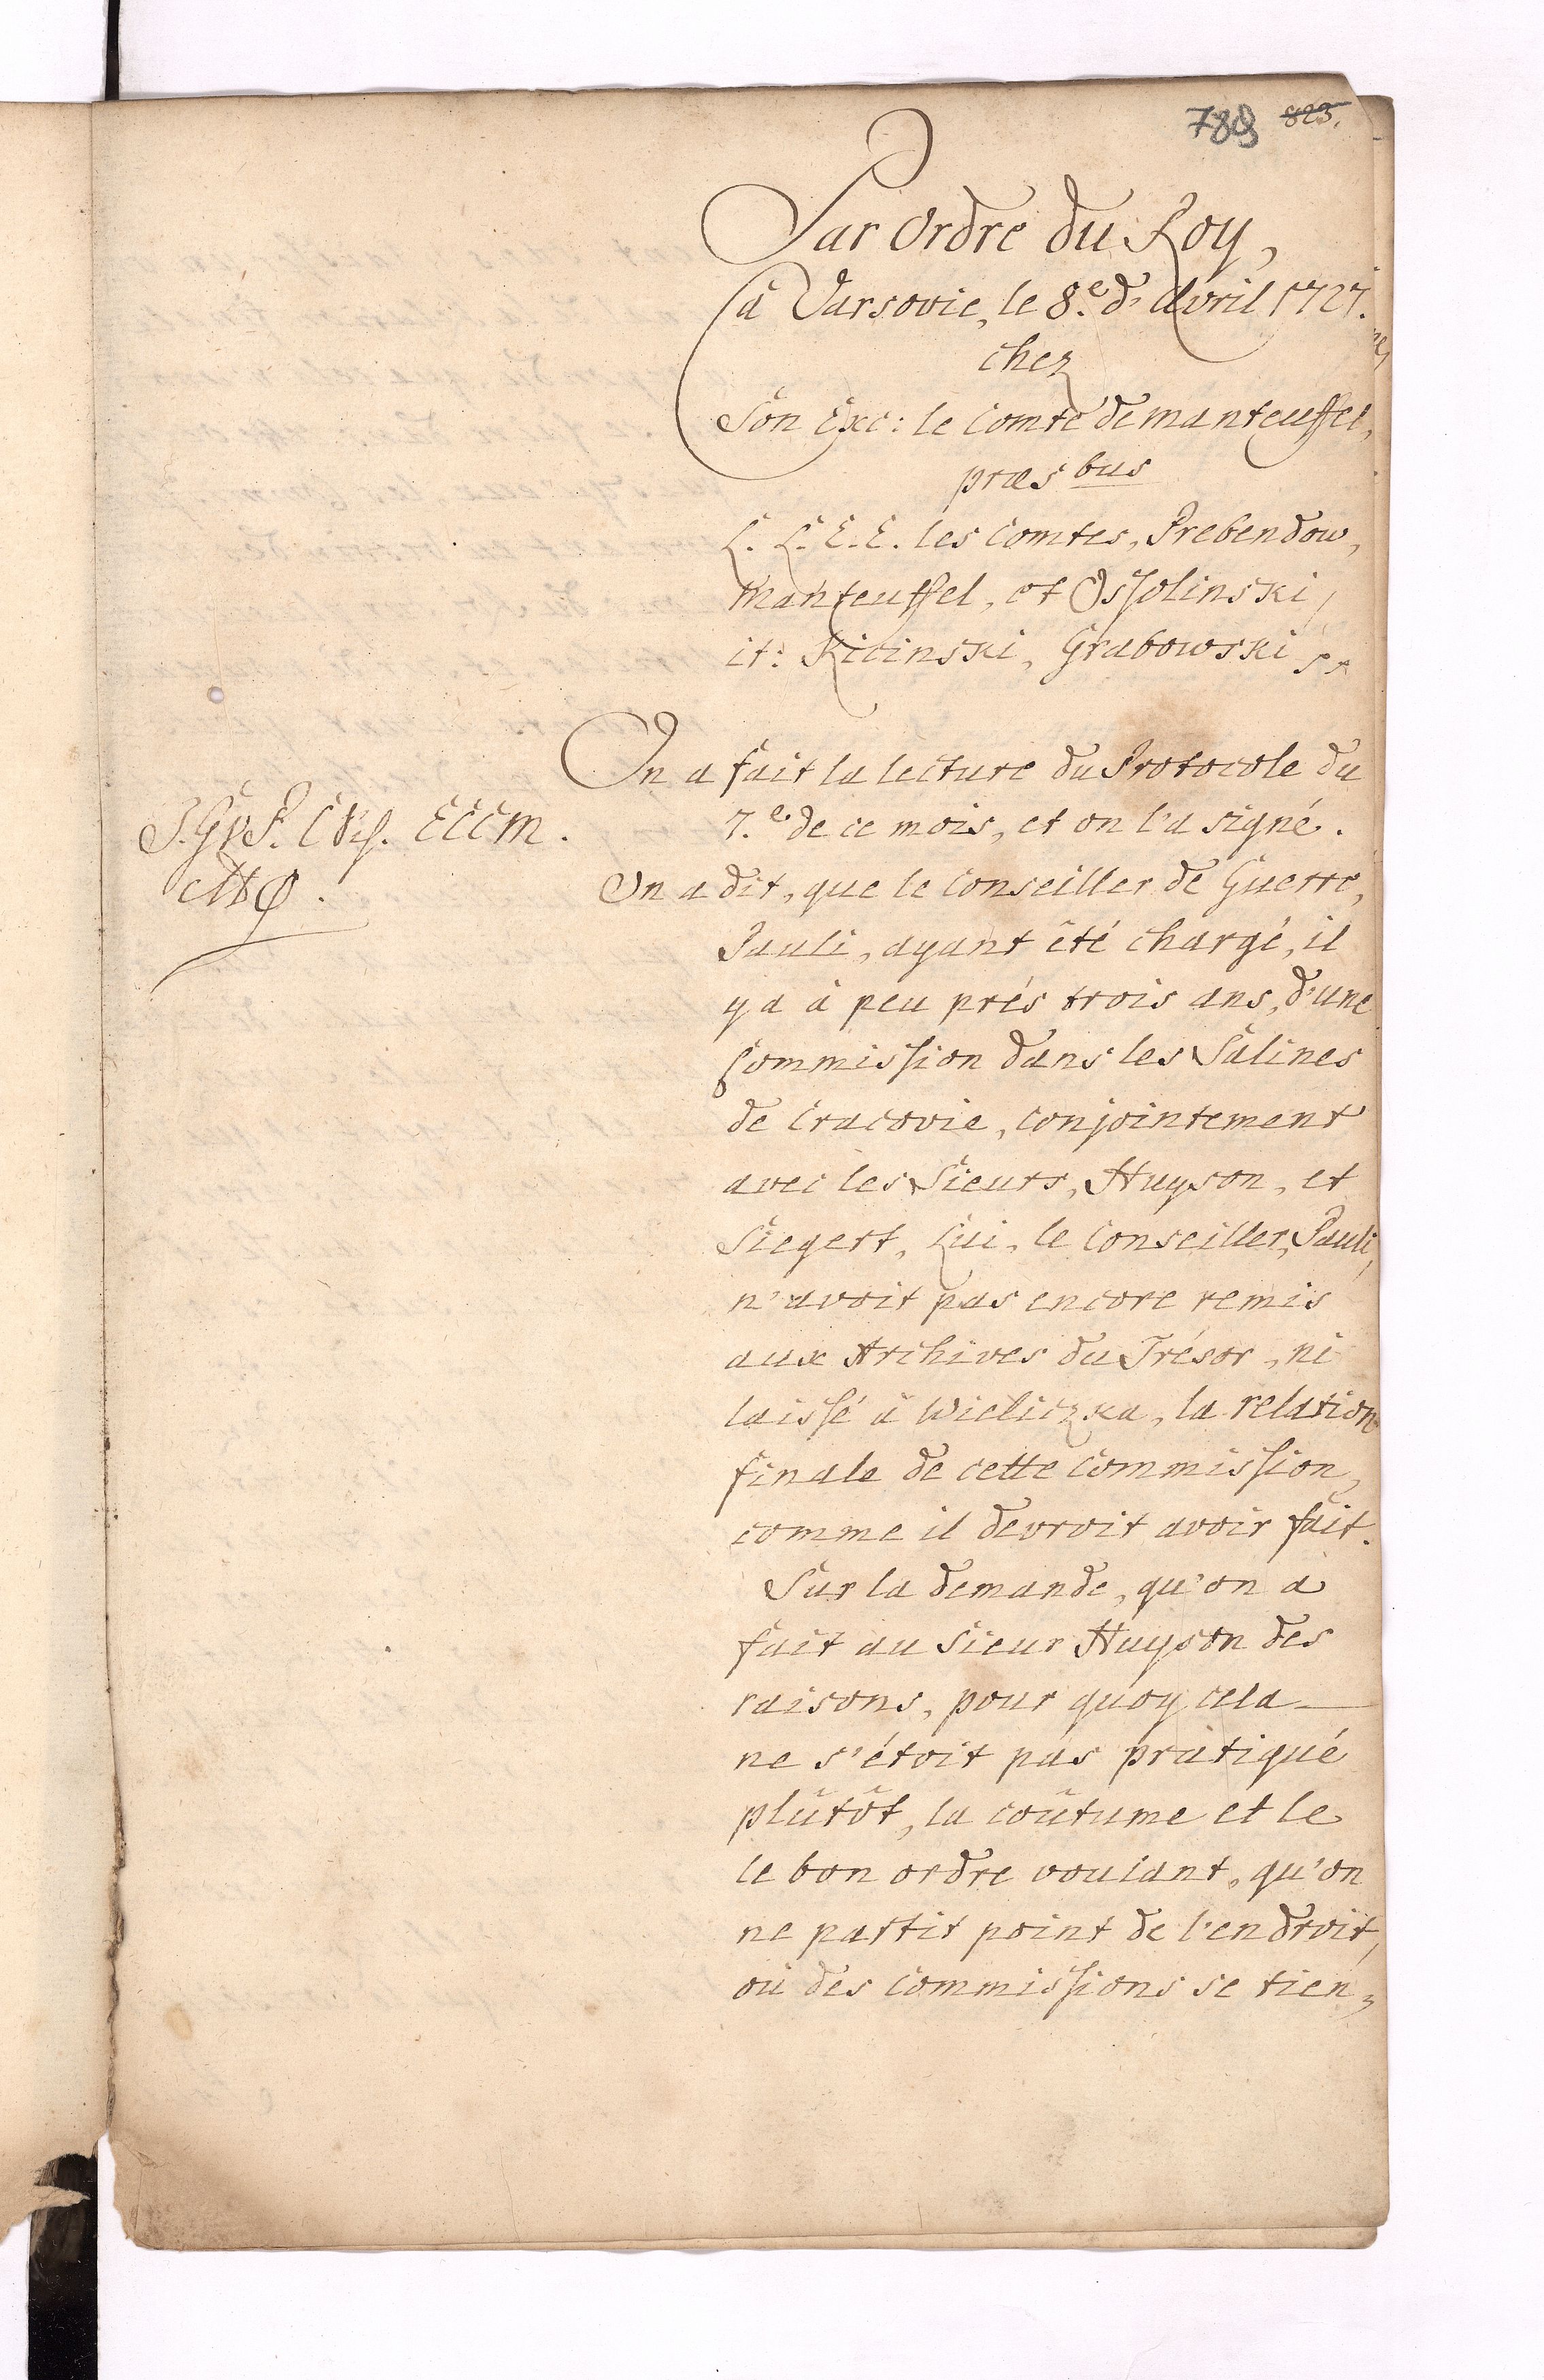 789 823.
Par Ordre du Roy,
à Varsovie, le 8.e d'Avril 1727.
chez
Son Exc: le Comte de Manteuffel,
præsbus
L. L. E. E. les Comtes, Prebendow,
Manteuffel, et Ossolinski,
it: Kicinski, Grabowski
On a fait la lecture du Protocole du
7.e de ce mois, et on l'a signé.
On a dit, que le Conseiller de Guerre,
Pauli, ayant été chargé, il
y a à peu prés trois ans, d'une
Commission dans les Salines
de Cracovie, conjointement
avec les Sieurs, Huyson, et
Siegert, Lui, le Conseiller, Pauli,
n'avoit pas encore remis
aux Archives du Trésor, ni
laissé à Wieliczka, la relation
finale de cette Commission,
comme il devroit avoir fait.
Sur la demande, qu'on a
fait au Sieur Huyson des
raisons, pour quoy cela
ne s'étoit pas pratiqué
plûtôt, la coûtume et le
le bon ordre voulant, qu'on
ne partit point de l'endroit,
où des Commissions se tien,